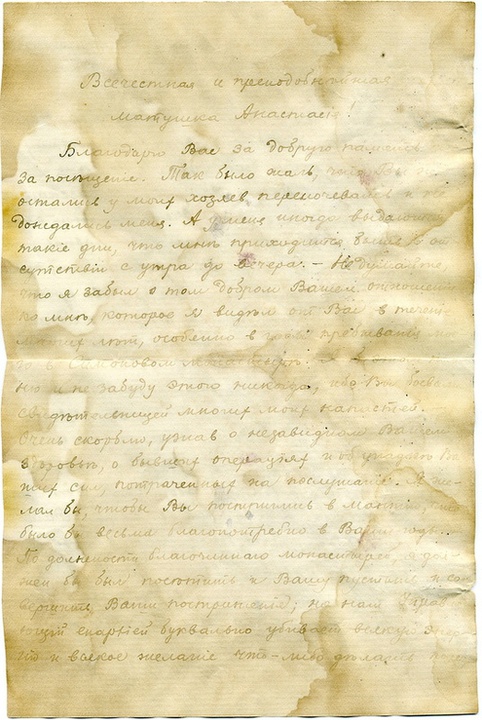 Всечестная и преподобнѣйшая
Матушка Анастасія!
Благодарю Вас за добрую память
за посѣщеніе. Так было жаль, что Вы
остались у моих хозяев переночевать и не
дождались меня. А у меня иногда выдаются
такіе дни, что мнѣ приходится быть в от
сутствіи с утра до вечера. – Не думайте,
что я забыл о том добром Вашем отношеніи
ко мнѣ, которое я видѣл от Вас в теченіе
многих лѣт, особенно в годы пребыванія мо
го в Симоновом
ню и не забуду этого никогда, ибо Вы
свидѣтельницей многих моих напастей.
Очень скорблю, узнав о незавидном Вашем
здоровьи, о бывших операціях и об упадке Ва
ших сил, потраченных на послушаніе. Я же-
лал бы, чтобы Вы постриглись в мантію,
было бы весьма благопотребно в Ваши годы.
По должности благочиннаго монастырей, я дол-
жен бы был посѣтить и Вашу пустынь и сов
вершить Ваши постриженія; но нам Управ
ющій епархіей буквально убивает всякую
и всякое желаніе что-либо дѣлать